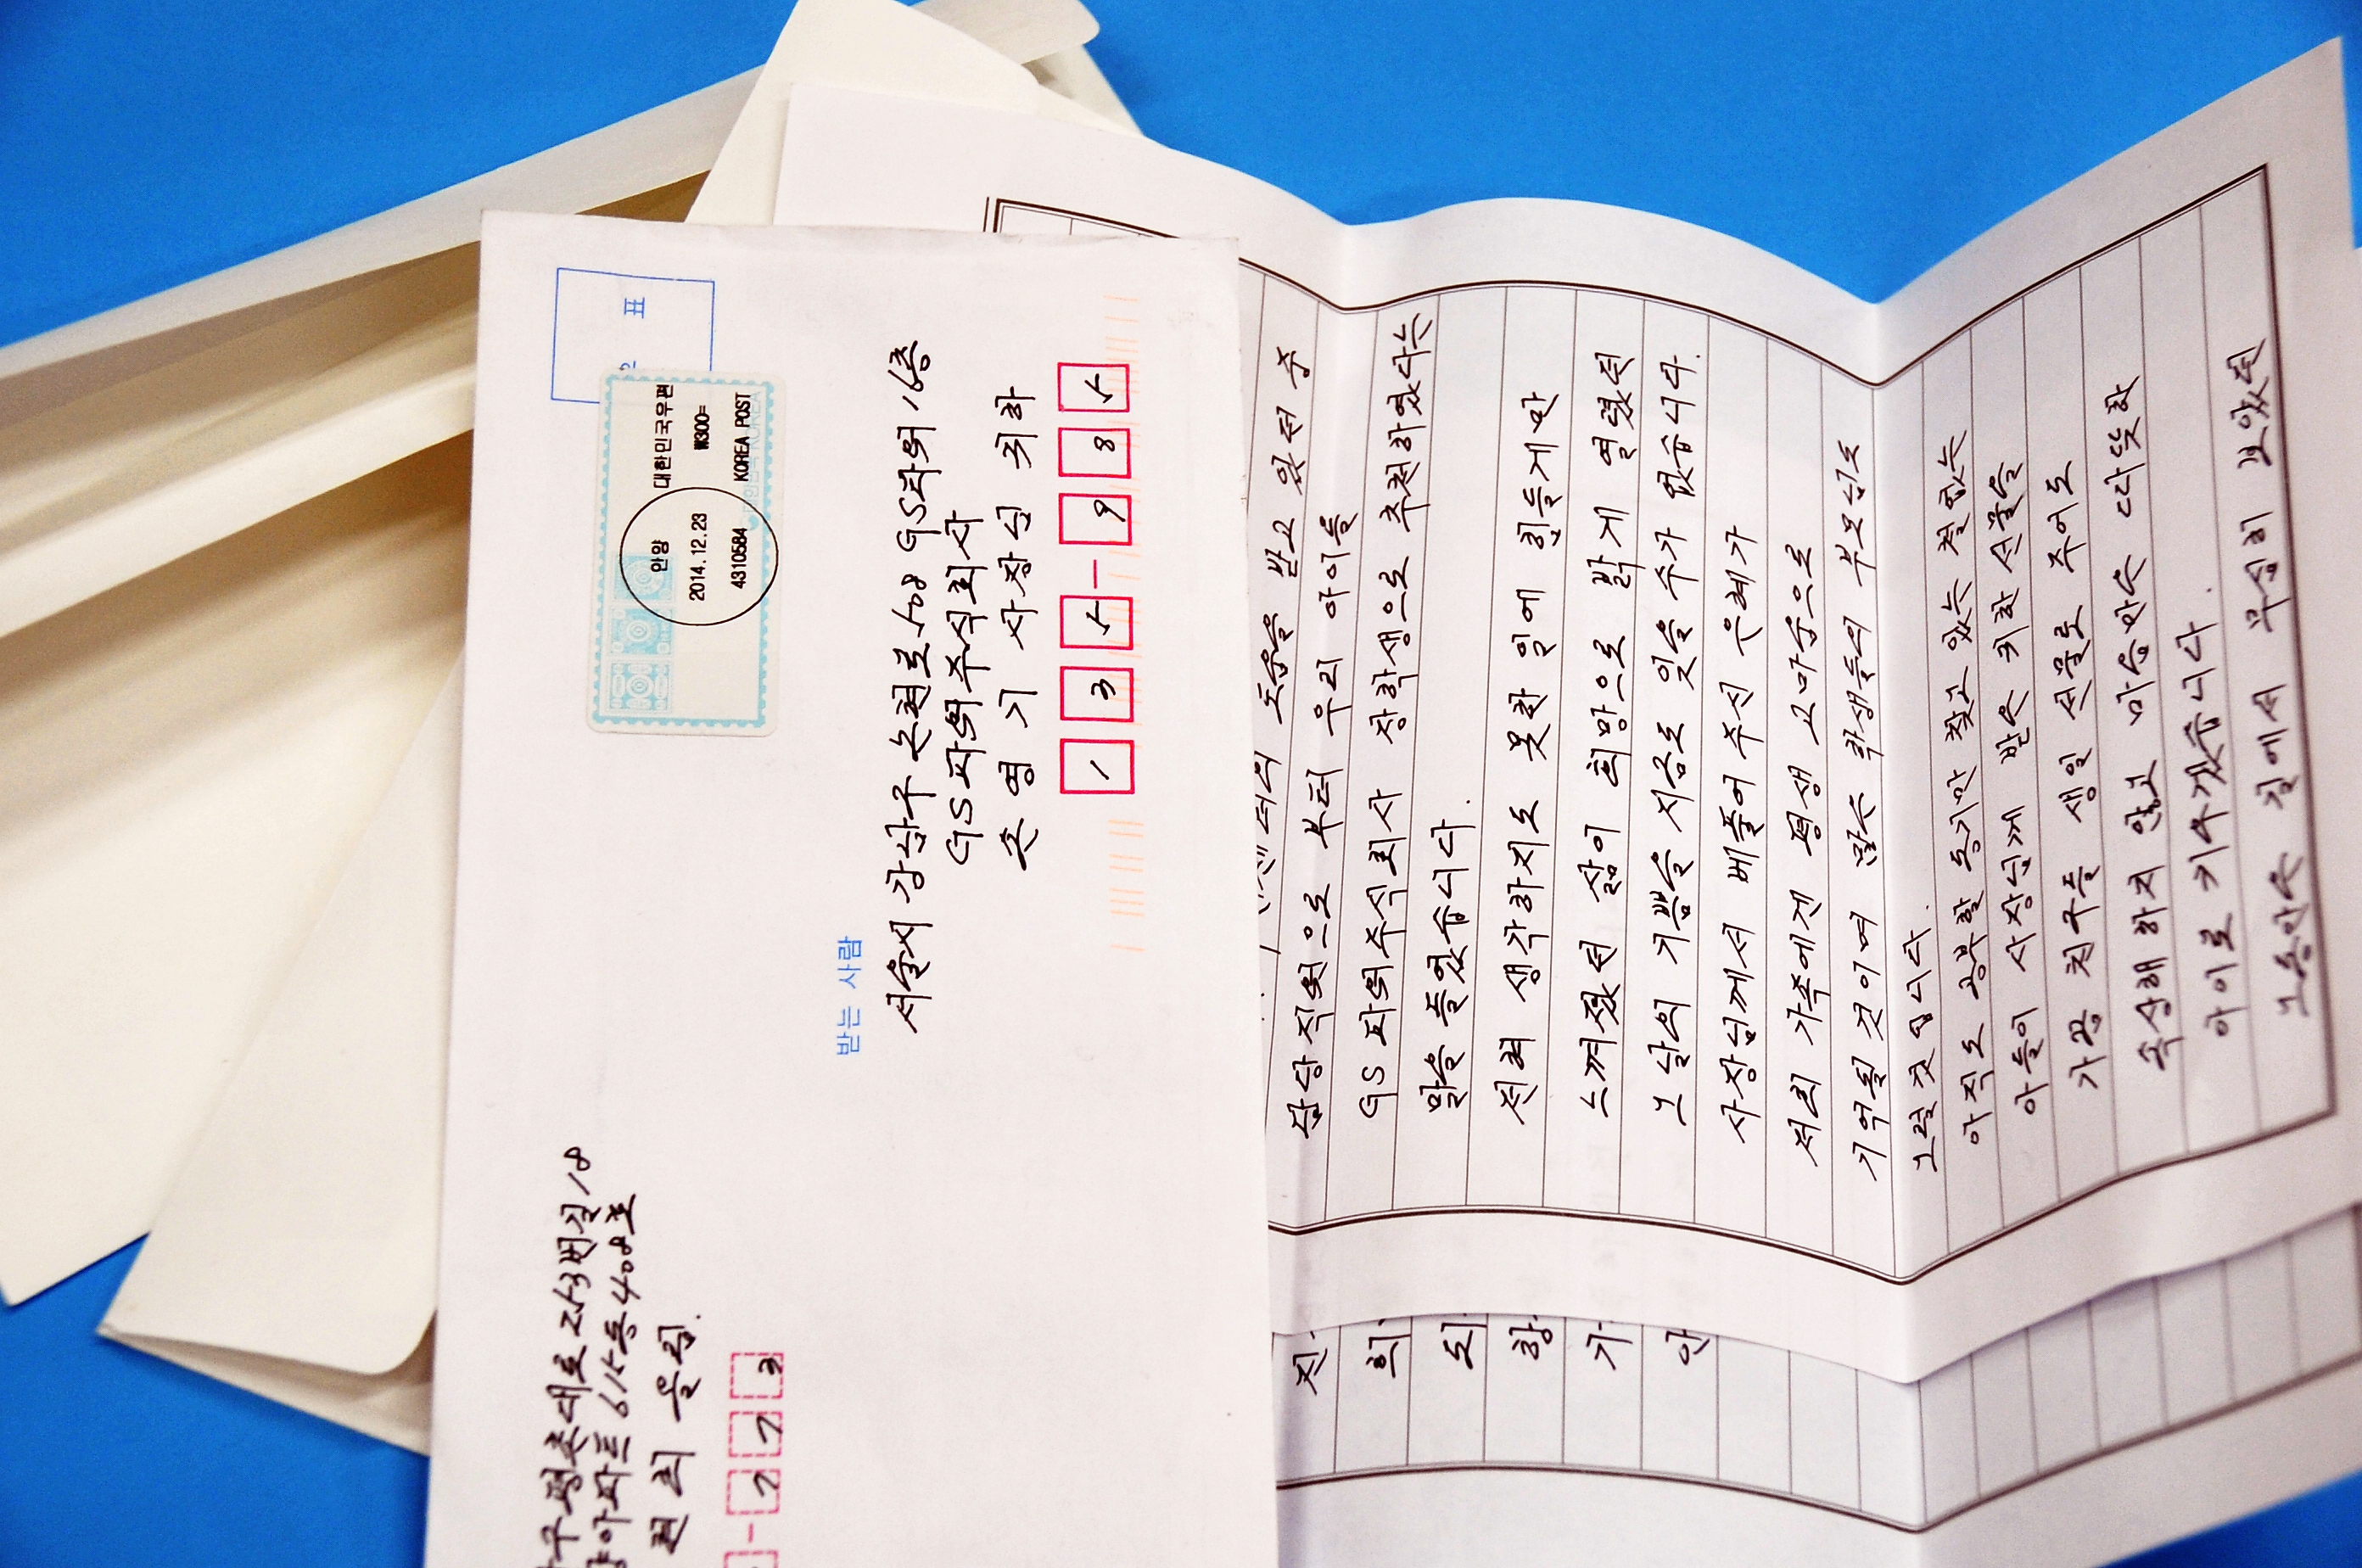 구 평촌대로 253번길 18
아파트 615동 408호
올림.
773
우표
대한민국우편
₩300=
KOREA POST
안양
2014.12.23
4310584
받는 사람
서울시 강남구 논현로 508 GS타워 16층
GS파워주식회사
손 영 기 사장님 귀하
135-985
도움을 받고 있던 중
담당 직원으로 부터 우리 아이를
GS파워주식회사 장학생으로 추천하였다는
말을 들었습니다.
전혀 생각하지도 못한 일에 힘들게만
느껴졌던 삶이 희망으로 밝게 열렸던
그날의 기쁨을 지금도 잊을 수가 없습니다.
사장님께서 베풀어 주신 은혜가
저희 가족에겐 평생 고마움으로
기억될 것이며 많은 학생들의 부모님도
그럴것 입니다.
아직도 공부할 동기만 찾고 있는 철없는
아들이 사장님께 받은 귀한 선물을
가끔 친구들 생일 선물로 주어도
속상해 하지 않고 마음만은 따뜻한
아이로 키우겠습니다.
그동안은 길에서 무심히 보았던
진
희
도
항
가
안